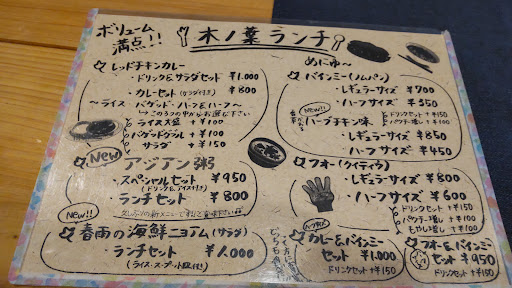 ボリューム
満点!!
木ノ葉ランチ
めにゅ〜
レッドチキンカレー
・ドリンク&サラダセット ¥1.000
・カレーセット(サラダ付き) ¥800
〜ライス バゲット・ハーフ&ハーフ〜
ライス大盛 +¥100
バゲットダブル +¥100
サラダ +¥150
New
アジアン粥
・スペシャルセット ¥950
(ドリンク&アイス付き)
・ランチセット ¥800
New!!
春雨の海鮮ニョアム(サラダ)
・ランチセット ¥1.000
(ライス・スープ・取付)
バインミー(ノムパン)
・レギュラーサイズ ¥700
・ハーフサイズ ¥350
ドリンクセット +¥150
パクチー増し +¥100
New!!
ハーブチキン味
・レギュラーサイズ ¥850
・ハーフサイズ ¥450
フォー(クイティウ)
・レギュラーサイズ ¥800
・ハーフサイズ ¥600
ドリンクセット +¥150
パクチー増し +¥100
もやし増し +¥100
ハーフサイズ
どちらも
カレー&バインミー
セット ¥1.000
ドリンクセット +¥150
フォー&バインミー
セット ¥950
ドリンクセット +¥150